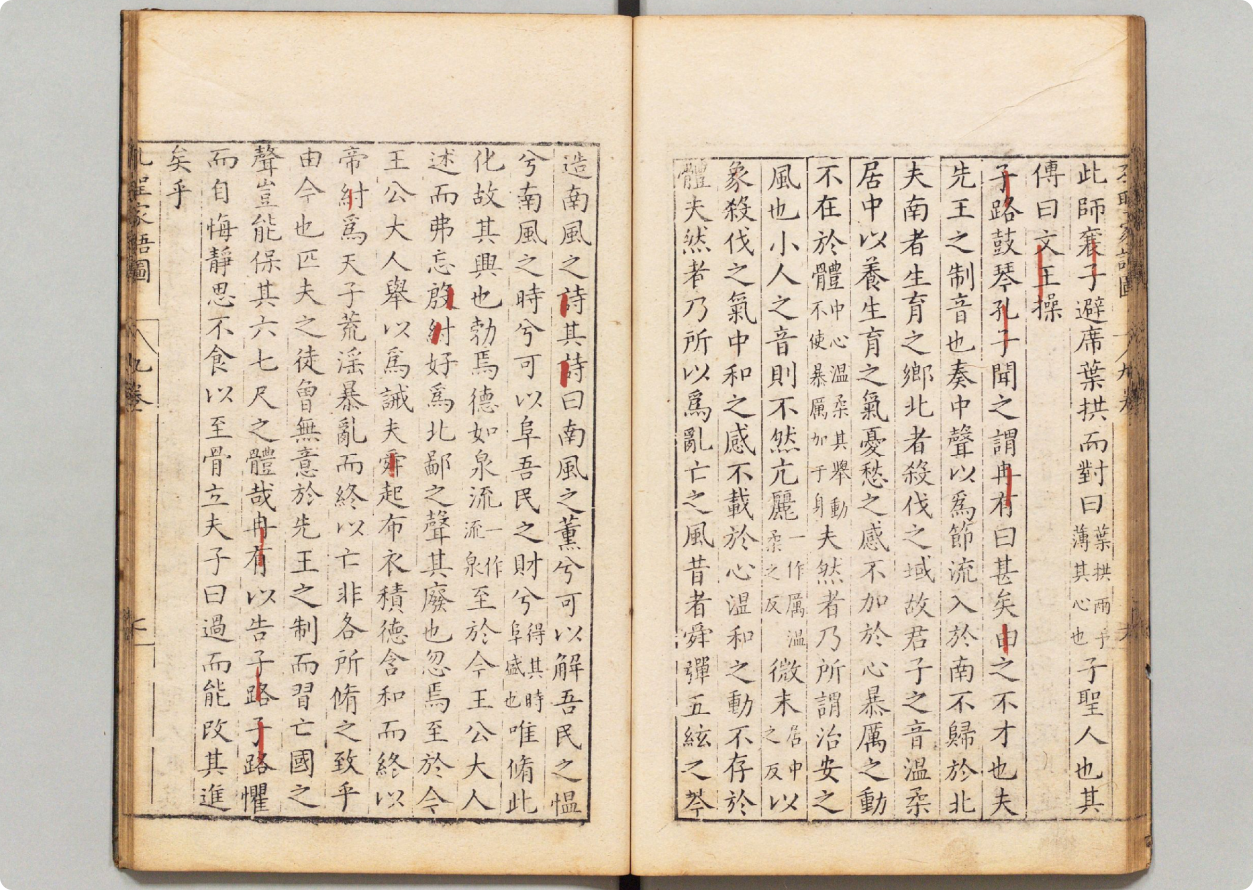 此師襄子避席葉拱而對曰葉拱兩手薄其心也子聖人也其
傳曰文王操
子路鼓琴孔子聞之謂冉有曰甚矣由之不才也夫
先王之制音也奏中聲以爲節流入於南不歸於北
夫南者生育之鄉北者殺伐之域故君子之音溫柔
居中以養生育之氣憂愁之感不加於心暴厲之動
不在於體中心溫柔其舉動不使暴厲加于身夫然者乃所謂治安之
風也小人之音則不然亢麗一作厲溫柔之反微末居中之反以
象殺伐之氣中和之感不載於心溫和之動不存於
體夫然者乃所以爲亂亡之風昔者舜彈五絃之琴
造南風之詩其詩曰南風之薰兮可以解吾民之慍
兮南風之時兮可以阜吾民之財兮得其時阜盛也唯脩此
化故其興也勃焉德如泉流一作流泉至於今王公大人
述而弗忘殷紂好爲北鄙之聲其廢也忽焉至於今
王公大人舉以爲誡夫舜起布衣積德含和而終以
帝紂爲天子荒淫暴亂而終以亡非各所脩之致乎
由今也匹夫之徒曾無意於先王之制而習亡國之
聲豈能保其六七尺之體哉冉有以告子路子路懼
而自悔靜思不食以至骨立夫子曰過而能改其進
矣乎
家語圖 九卷